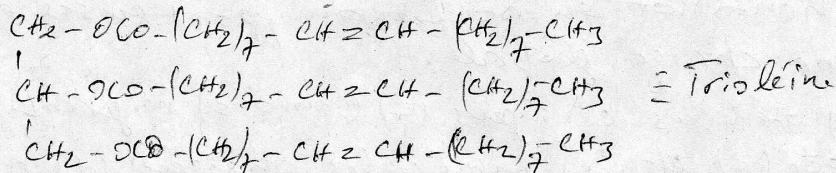 CH2 - OCO - (CH2)7 - CH = CH - (CH2)7 - CH3
CH - OCO - (CH2)7 - CH = CH - (CH2)7 - CH3 ≡ Trioléine
CH2 - OCO - (CH2)7 - CH = CH - (CH2)7 - CH3